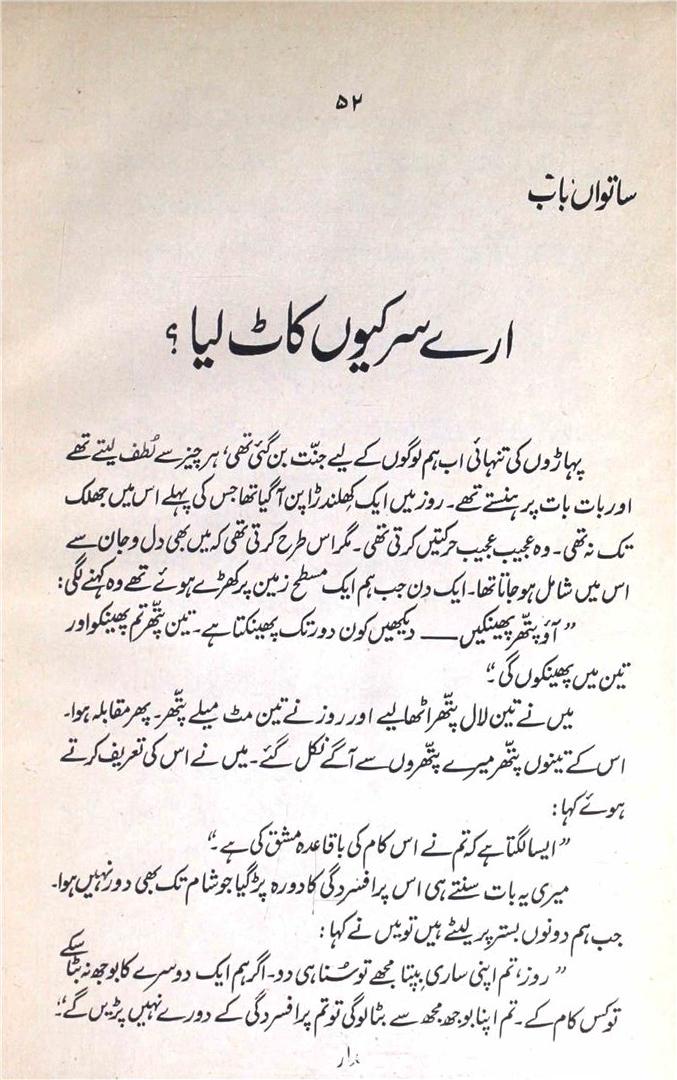 ۵۲
ساتواں باب
ارے سر کیوں کاٹ لیا ؟
پہاڑوں کی تنہائی اب ہم لوگوں کے لیے جنّت بن گئی تھی، ہر چیز سے لُطف لیتے تھے
اور بات بات پر ہنستے تھے۔ روز میں ایک کھلنڈرا پن آگیا تھا جس کی پہلے اس میں جھلک
تک نہ تھی۔ وہ عجیب عجیب حرکتیں کرتی تھی۔ مگر اس طرح کرتی تھی کہ میں بھی دل و جان سے
اس میں شامل ہو جاتا تھا۔ ایک دن جب ہم ایک مسطح زمین پر کھڑے ہوئے تھے وہ کہنے لگی:
”آؤ پتّھر پھینکیں —— دیکھیں کون دور تک پھینکتا ہے۔ تین پتّھر تم پھینکو اور
تین میں پھینکوں گی۔“
میں نے تین لال پتّھر اٹھا لیے اور روز نے تین مٹ میلے پتّھر۔ پھر مقابلہ ہوا۔
اس کے تینوں پتّھر میرے پتّھروں سے آگے نکل گئے۔ میں نے اس کی تعریف کرتے
ہوئے کہا:
”ایسا لگتا ہے کہ تم نے اس کام کی باقاعدہ مشق کی ہے۔“
میری یہ بات سنتے ہی اس پر افسردگی کا دورہ پڑ گیا جو شام تک بھی دور نہیں ہوا۔
جب ہم دونوں بستر پر لیٹے ہیں تو میں نے کہا:
”روز، تم اپنی ساری بپتا مجھے تو سُنا ہی دو۔ اگر ہم ایک دوسرے کا بوجھ نہ بٹا سکے
تو کس کام کے۔ تم اپنا بوجھ مجھ سے بٹا لوگی تو تم پر افسردگی کے دورے نہیں پڑیں گے۔“